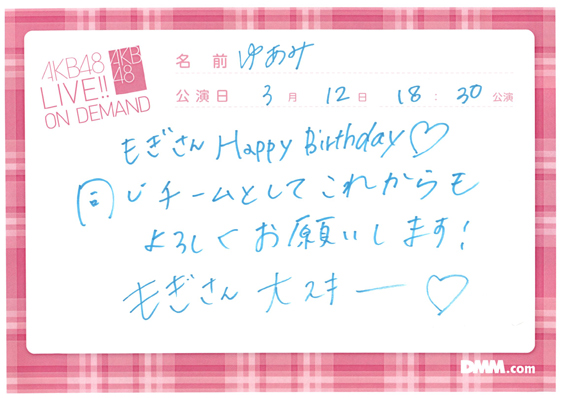 AKB48
LIVE!!
ON DEMAND
AKB
48
名前 ゆあみ
公演日 3月 12日 18:30 公演
もぎさん Happy Birthday♡
同じチームとしてこれからも
よろしくお願いします!
もぎさん 大スキー♡
DMM.com